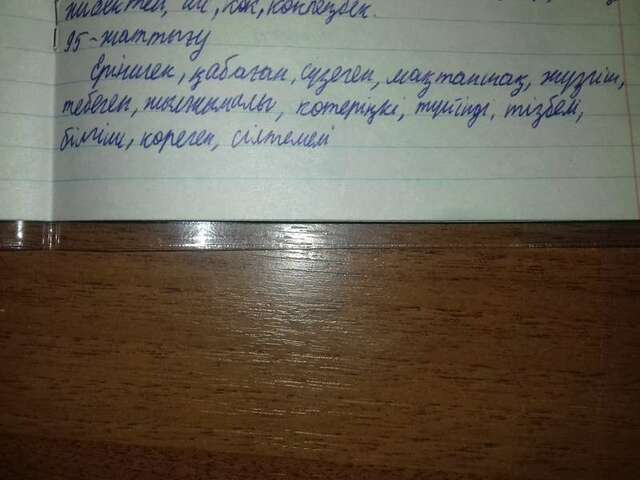 көк, көкпеңбек.
95-жаттығу
Ерініген, қабаған, сүзеген, мақтаншақ, жүзгіш,
тебеген, жылжымалы, көтеріңкі, түйінді, тізбелі,
білгіш, көреген, сілтемелі